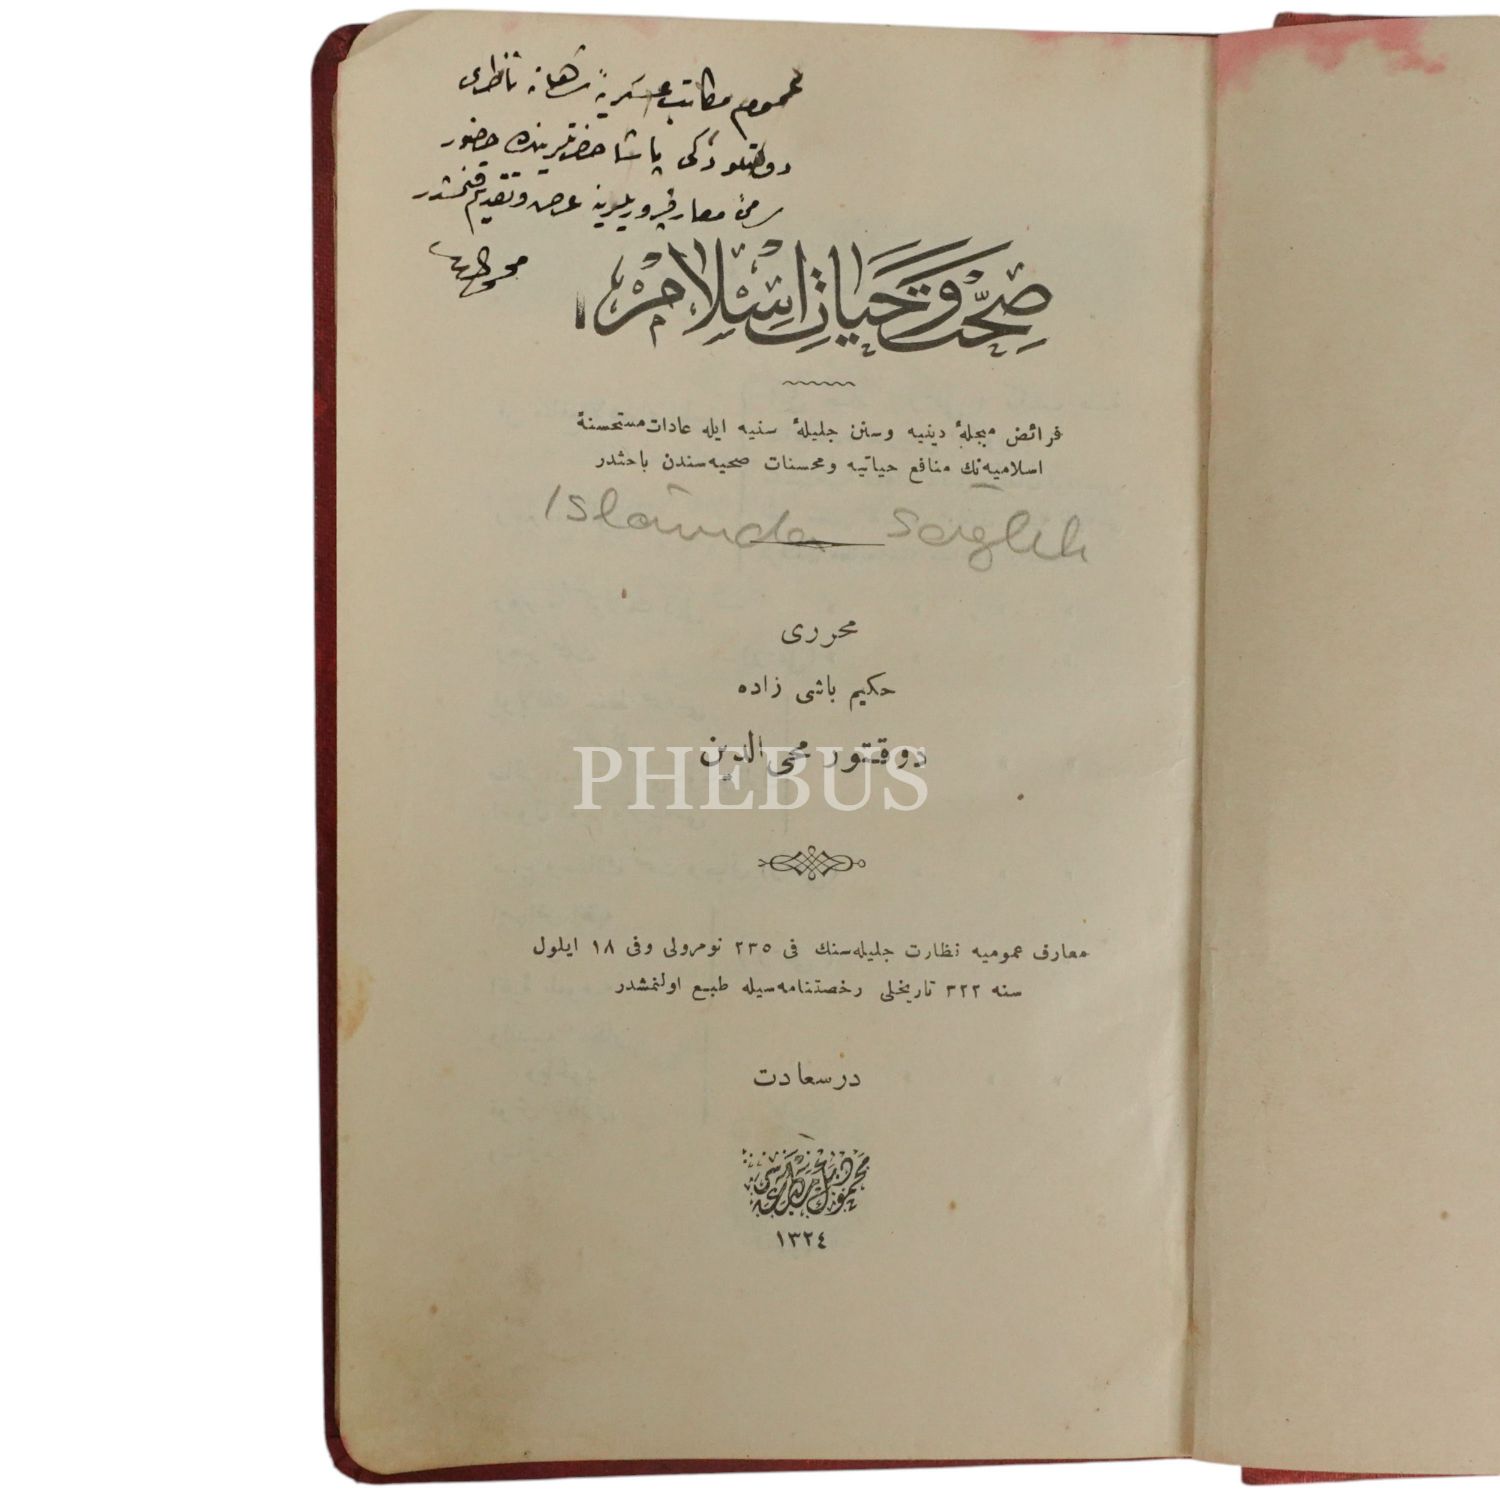 عموم مكاتب عسكريهٔ شاهانه ناظرى
دولتلو ذكى پاشا حضرتلرينك حضور
سامئ معارفپروريلرينه عرض و تقديم قلنمشدر
محى الدين
صحت و حيات اسلام
فرائض مبجلهٔ دينيه وسنن جليلهٔ سنيه ايله عادات مستحسنهٔ
اسلاميه‌نك منافع حياتيه ومحسنات صحيه‌سندن باحثدر
Islâmda Sağlık
محررى
حكيم باشى زاده
دوقتور محى الدين
PHEBUS
معارف عموميه نظارت جليله‌سنك فى ٢٣٥ نومرولى وفى ١٨ ايلول
سنه ٣٢٢ تاريخلى رخصتنامه‌سيله طبع اولنمشدر
درسعادت
محمود بك مطبعه‌سى
١٣٢٤